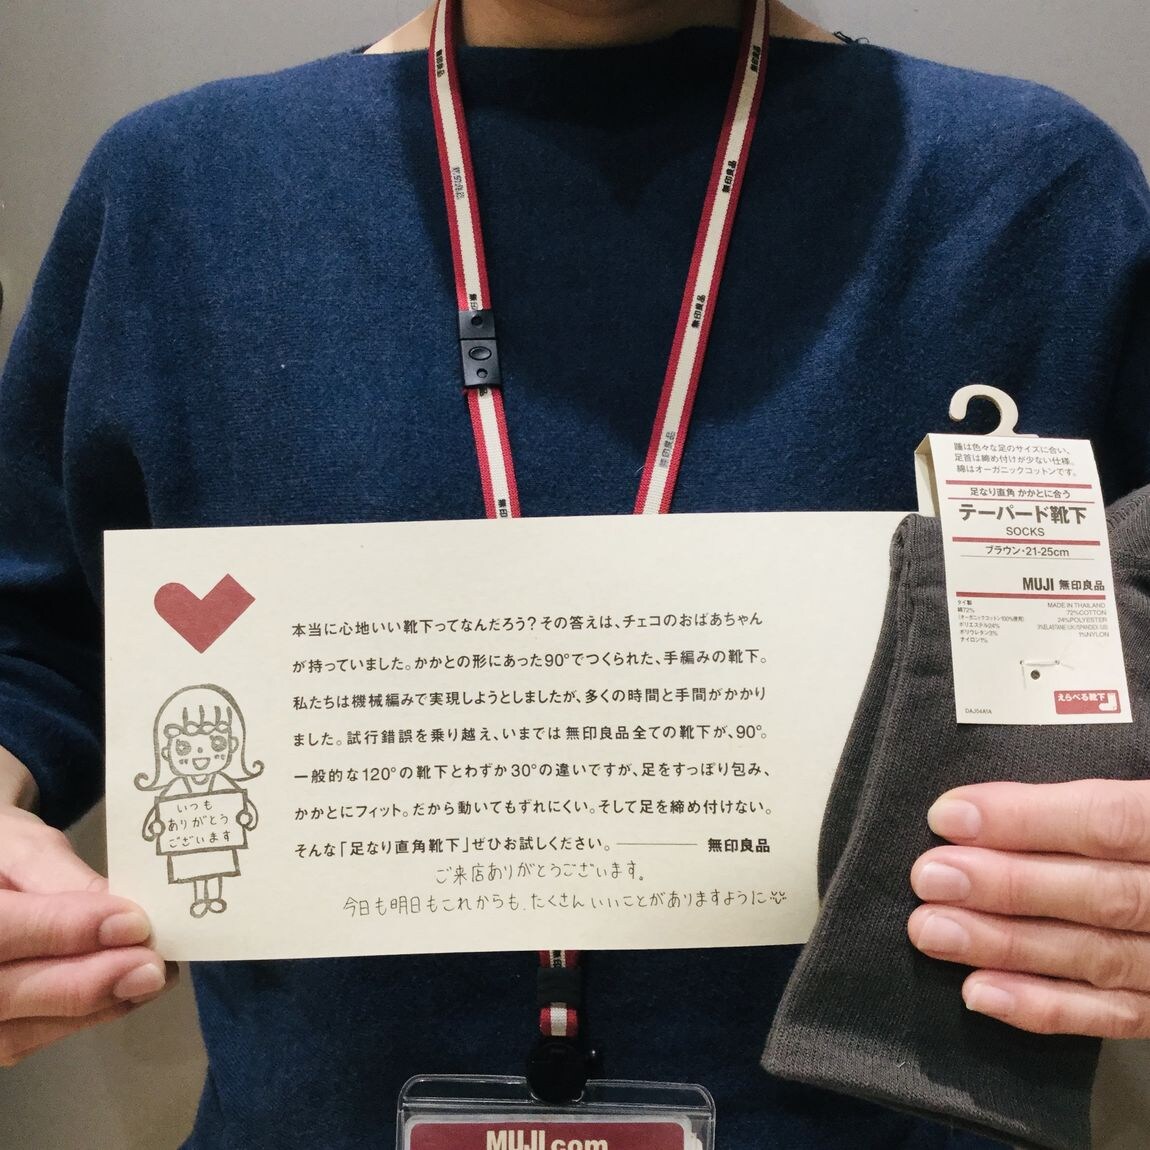 無印良品
無印良品
無印良品
無印良品
踵は色々な足のサイズに合い、
足首は締め付けが少ない仕様。
綿はオーガニックコットンです。
足なり直角 かかとに合う
テーパード靴下
SOCKS
ブラウン・21-25cm
MUJI 無印良品
タイ製
綿72%
(オーガニックコットン100%使用)
ポリエステル24%
ポリウレタン3%
ナイロン1%
MADE IN THAILAND
72%COTTON
24%POLYESTER
3%ELASTANE(UK)/SPANDEX(US)
1%NYLON
えらべる靴下
DAJ04A1A
本当に心地いい靴下ってなんだろう?その答えは、チェコのおばあちゃん
が持っていました。かかとの形にあった90°でつくられた、手編みの靴下。
私たちは機械編みで実現しようとしましたが、多くの時間と手間がかかり
ました。試行錯誤を乗り越え、いまでは無印良品全ての靴下が、90°。
一般的な120°の靴下とわずか30°の違いですが、足をすっぽり包み、
かかとにフィット。だから動いてもずれにくい。そして足を締め付けない。
そんな「足なり直角靴下」ぜひお試しください。 ——— 無印良品
ご来店ありがとうございます。
今日も明日もこれからも、たくさんいいことがありますように
いつも
ありがとう
ございます
MUJI.com